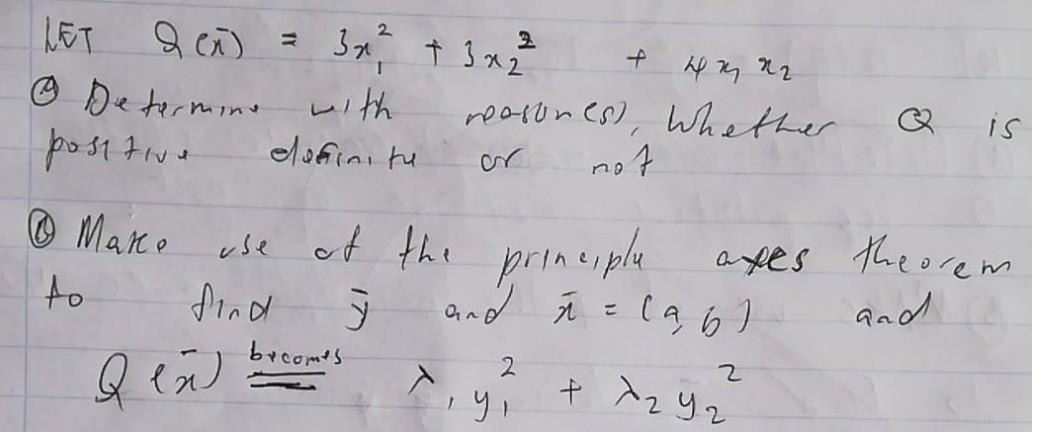 LET Q(x̄) = 3x₁² + 3x₂² + 4x₁x₂
ⓐ Determine with reason(s), Whether Q is
positive definite or not
ⓑ Make use of the principle axes theorem
to find ȳ and x̄ = (a, b) and
Q(x̄) becomes λ₁y₁² + λ₂y₂²